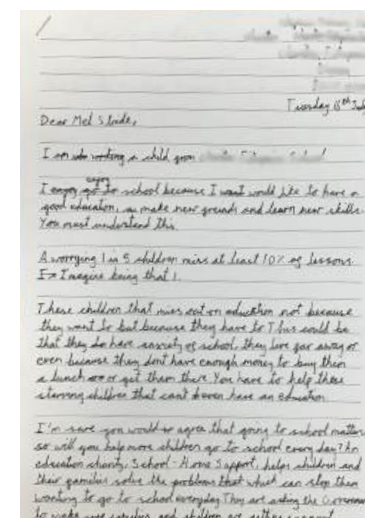 Tuesday 15th July
Dear Mel Stride,
I am a child from
I enjoy go to school because I want would like to have a
good education, make new friends and learn new skills.
You must understand this.
A worrying 1 in 5 children miss at least 10% of lessons.
Imagine being that 1.
These children that miss out on education not because
they want to but because they have to. This could be
that they do have anxiety of school, they live far away or
even because they dont have enough money to buy them
a lunch or get them there. You have to help these
starving children that cant even have an education.
I'm sure you would agree that going to school matters
so will you help more children go to school every day? An
education charity, School-Home Support, helps children and
their families solve the problems that which can stop them
wanting to go to school everyday. They are asking the Government
to make sure and children are support